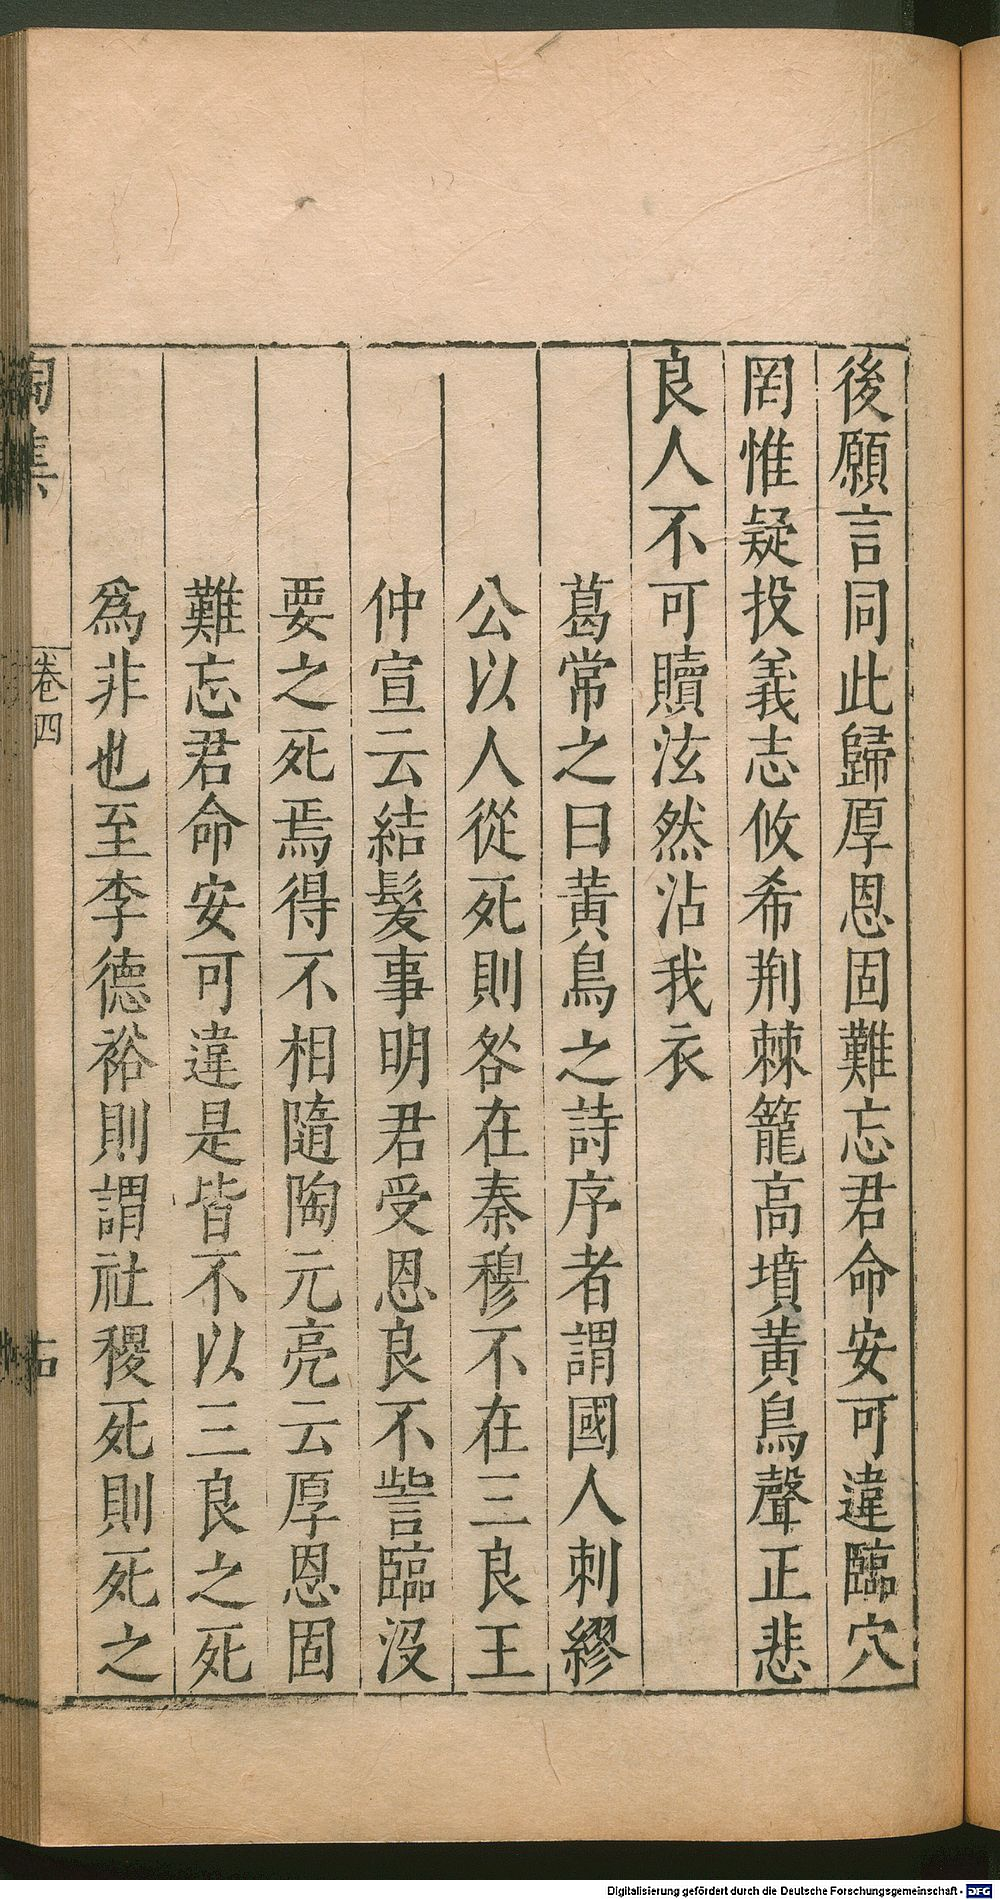 後願言同此歸厚恩固難忘君命安可違臨穴
罔惟疑投義志攸希荆棘籠高墳黃鳥聲正悲
良人不可贖泫然沾我衣
葛常之曰黃鳥之詩序者謂國人刺繆
公以人從死則咎在秦穆不在三良王
仲宣云結髮事明君受恩良不訾臨沒
要之死焉得不相隨陶元亮云厚恩固
難忘君命安可違是皆不以三良之死
爲非也至李德裕則謂社稷死則死之
陶集
卷四
Digitalisierung gefördert durch die Deutsche Forschungsgemeinschaft - DFG